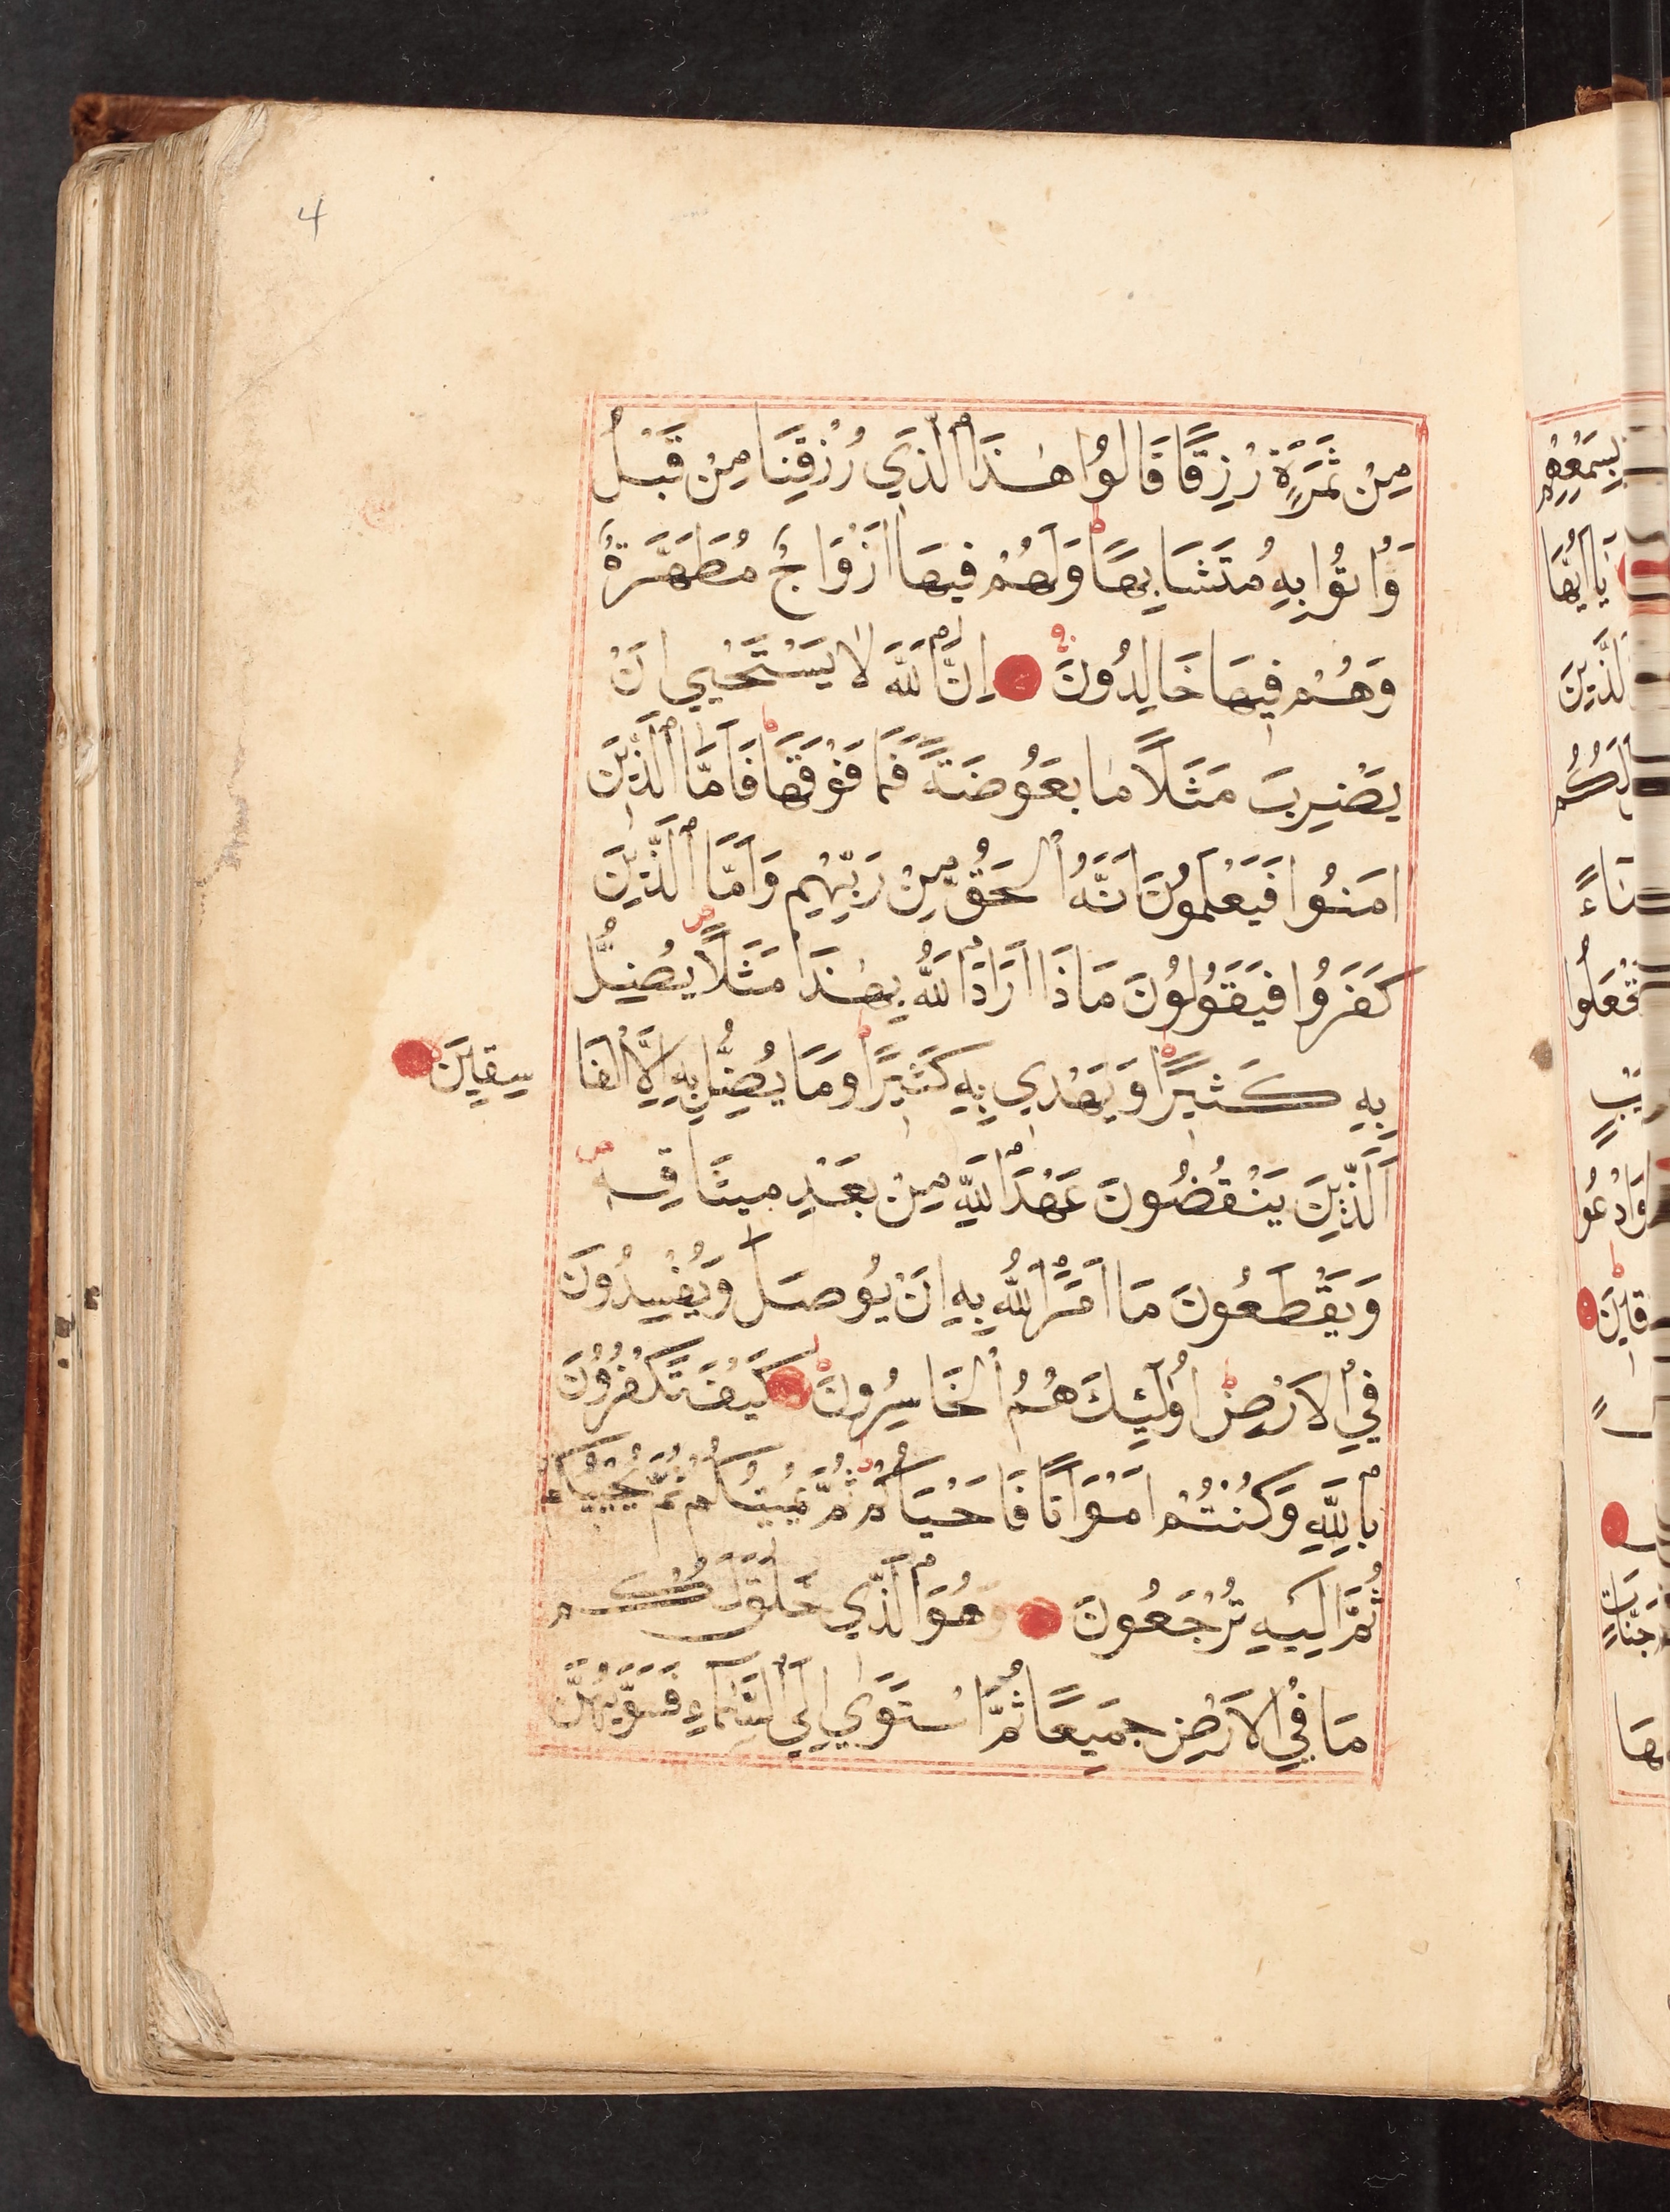 4
مِنْ ثَمَرَةٍ رِزْقًا قَالُوا هٰذَا الَّذِي رُزِقْنَا مِنْ قَبْلُ
وَاُتُوا بِهِ مُتَشَابِهًا ط وَلَهُمْ فِيهَا اَزْوَاجٌ مُطَهَّرَةٌ
وَهُمْ فِيهَا خَالِدُونَ اِنَّ اللَّهَ لَا يَسْتَحْيِي اَنْ
يَضْرِبَ مَثَلًا مَا بَعُوضَةً فَمَا فَوْقَهَا ط فَاَمَّا الَّذِينَ
اٰمَنُوا فَيَعْلَمُونَ اَنَّهُ الْحَقُّ مِنْ رَبِّهِمْ وَاَمَّا الَّذِينَ
كَفَرُوا فَيَقُولُونَ مَاذَا اَرَادَ اللَّهُ بِهٰذَا مَثَلًا يُضِلُّ
بِهِ كَثِيرًا ط وَيَهْدِي بِهِ كَثِيرًا ط وَمَا يُضِلُّ بِهِ اِلَّا الْفَا
سِقِينَ
اَلَّذِينَ يَنْقُضُونَ عَهْدَ اللَّهِ مِنْ بَعْدِ مِيثَاقِهِ ص
وَيَقْطَعُونَ مَا اَمَرَ اللَّهُ بِهِ اَنْ يُوصَلَ وَيُفْسِدُونَ
فِي الْاَرْضِ ط اُولٰئِكَ هُمُ الْخَاسِرُونَ كَيْفَ تَكْفُرُونَ
بِاللَّهِ وَكُنْتُمْ اَمْوَاتًا فَاَحْيَاكُمْ ثُمَّ يُمِيتُكُمْ ثُمَّ يُحْيِيكُمْ
ثُمَّ اِلَيْهِ تُرْجَعُونَ هُوَ الَّذِي خَلَقَ لَكُمْ
مَا فِي الْاَرْضِ جَمِيعًا ثُمَّ اسْتَوٰى اِلَى السَّمَاءِ فَسَوّٰيهُنَّ